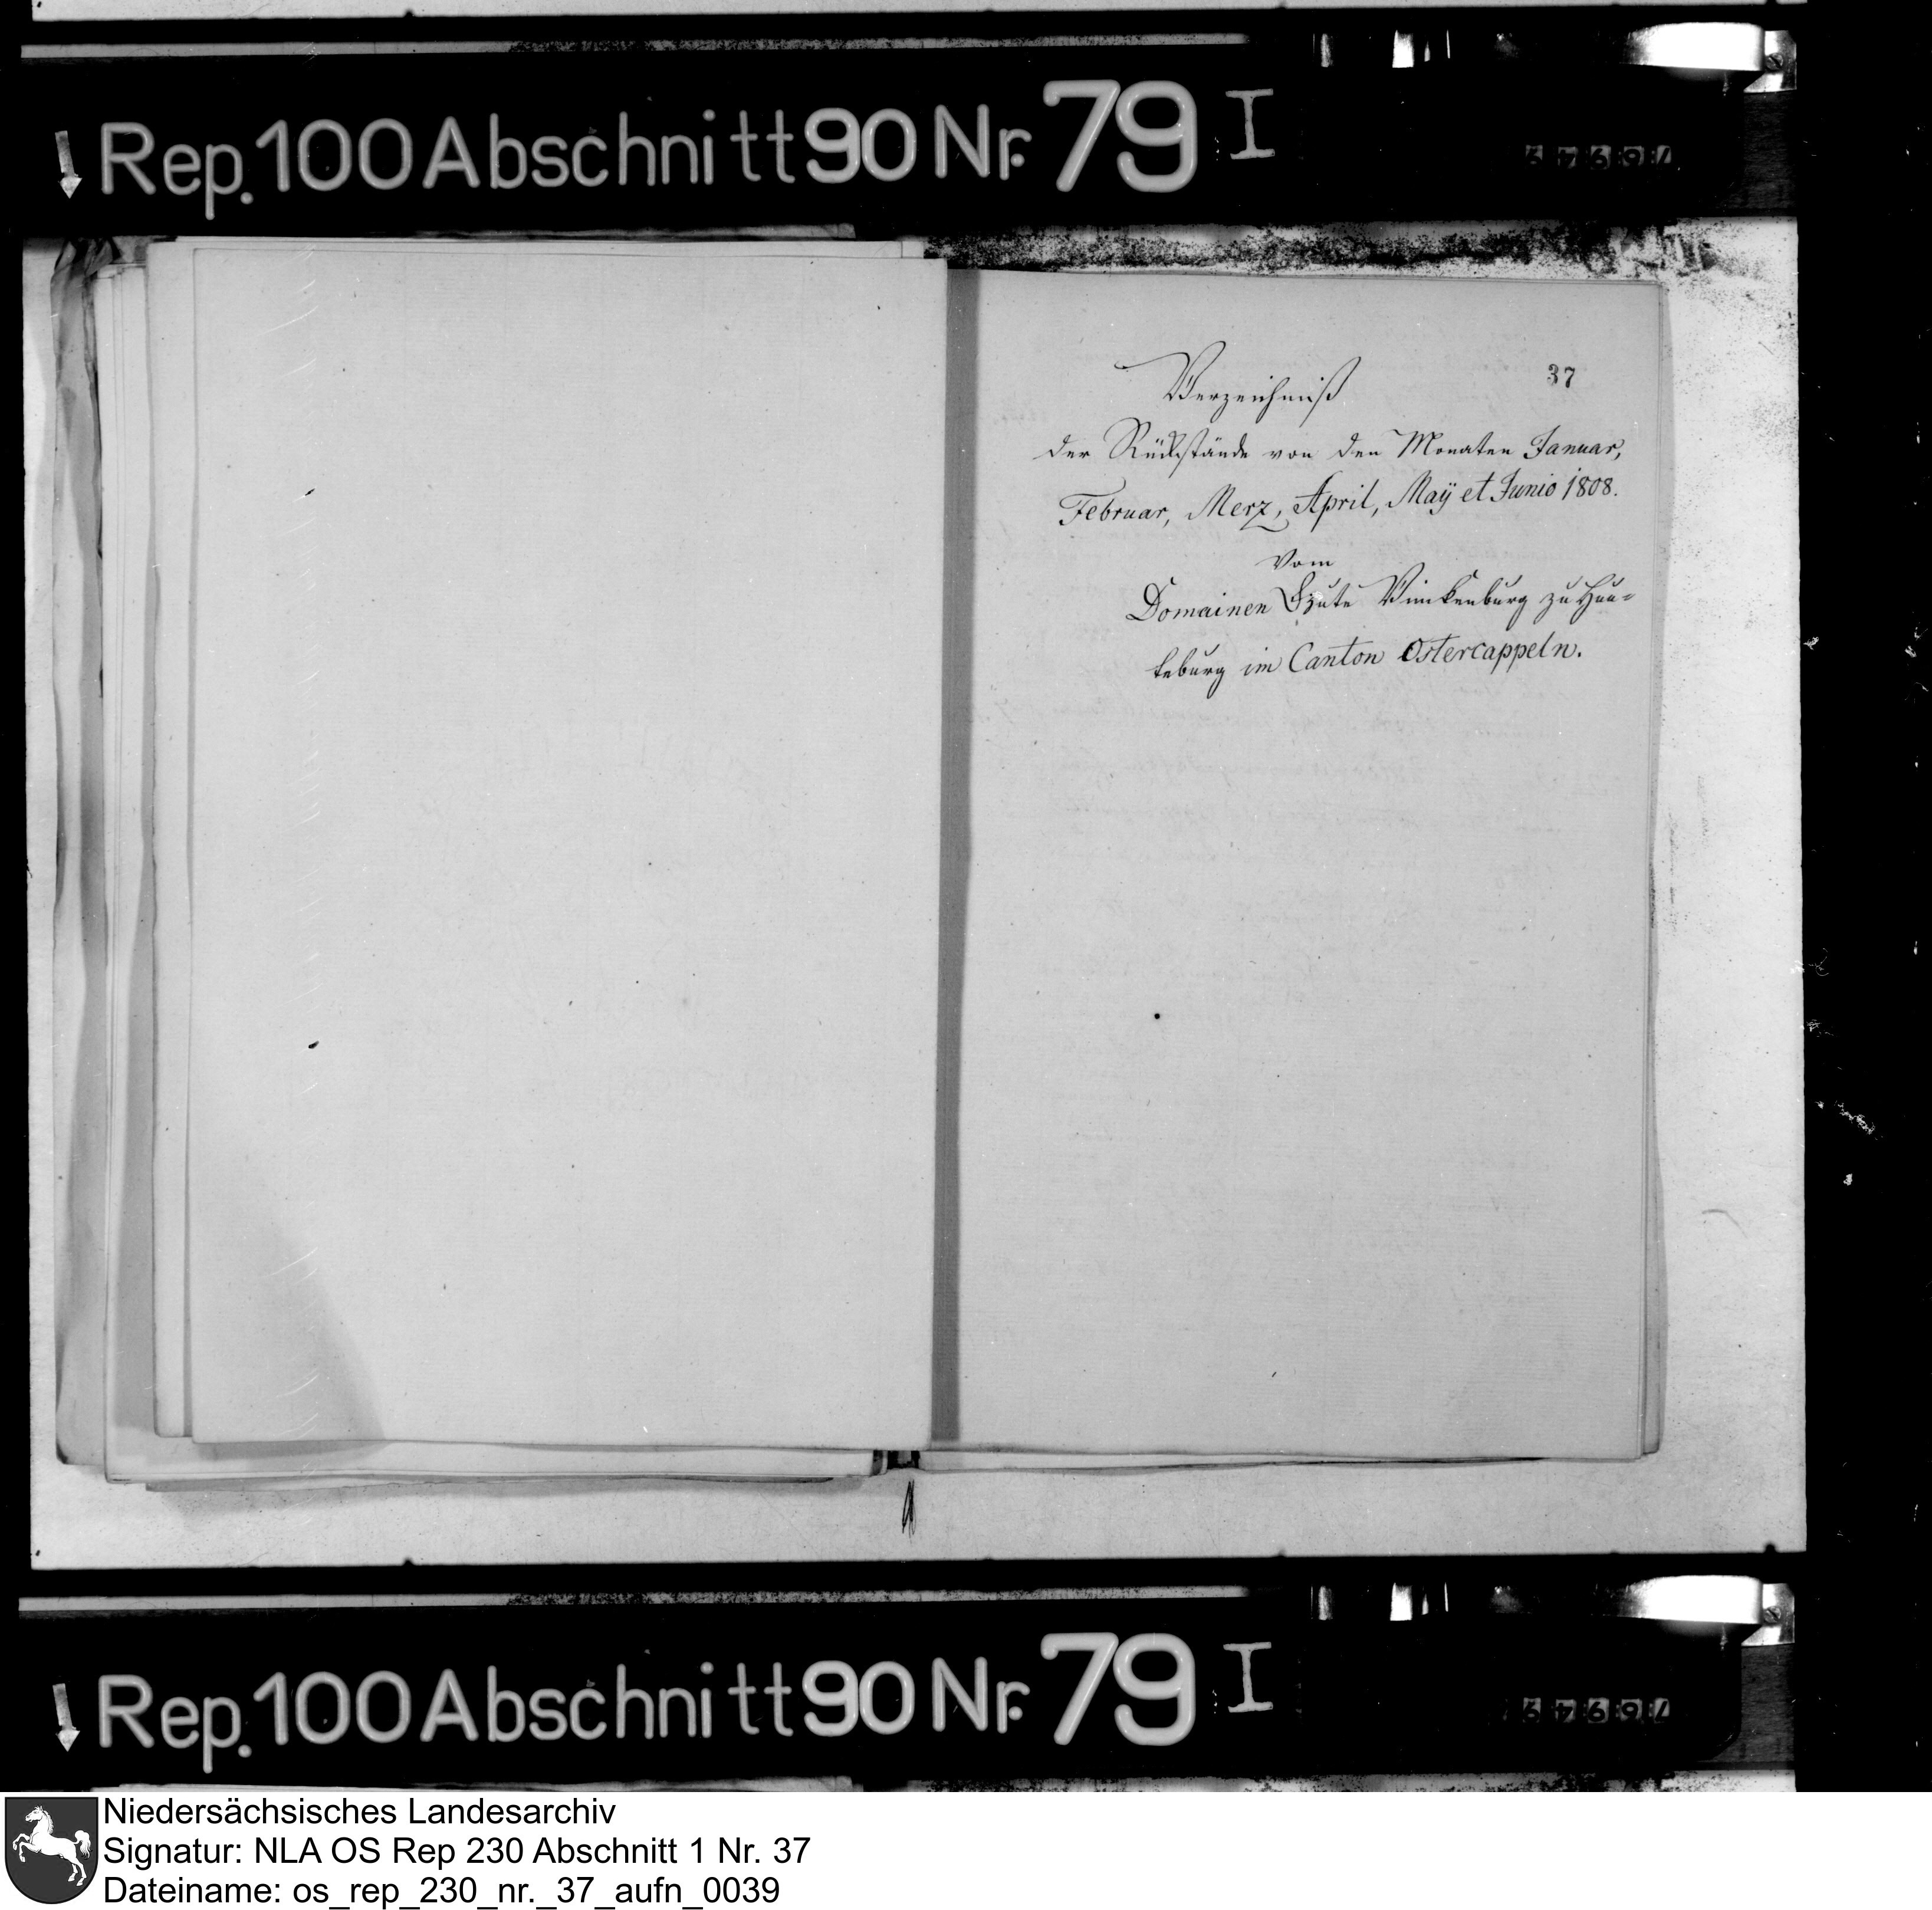 Rep. 100 Abschnitt 90 Nr. 79 I
76949
37
Verzeichniß
der Rückstände von den Monaten Januar,
Februar, Merz, April, Maÿ et Junio 1808.
vom
Domainen Gute Vinckenburg zu Hun=
teburg im Canton Ostercappeln.
Rep. 100 Abschnitt 90 Nr. 79 I
76949
Niedersächsisches Landesarchiv
Signatur: NLA OS Rep 230 Abschnitt 1 Nr. 37
Dateiname: os_rep_230_nr._37_aufn_0039